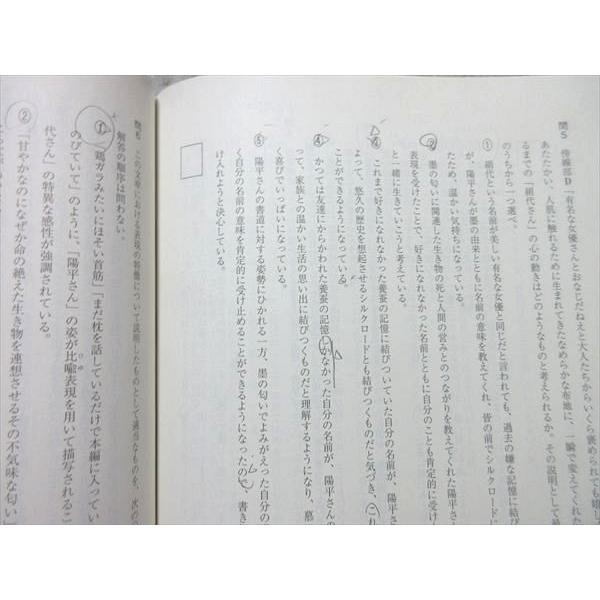 問5 傍線部D「有名な女優さんとおなじだねえと大人たちからいくら褒められても
あたたかい、人肌に触れるために生まれてきたなめらかな布地に、一瞬で変えてくれた
るまでの「絹代さん」の心の動きはどのようなものと考えられるか。その説明として最
のうちから一つ選べ。
① 絹代という名前が美しい有名な女優と同じだと言われても、過去の嫌な記憶に結び
が、陽平さんが墨の由来とともに名前の意味を教えてくれ、皆の前でシルクロードに
ため、温かい気持ちになっている。
② 墨の匂いに関連した生き物の死と人間の営みとのつながりを教えてくれた陽平さ
表現を受けたことで、好きになれなかった名前とともに自分のことも肯定的に受け
と一緒に生きていこうと考えている。
③ これまで好きになれなかった養蚕の記憶に結びついていた自分の名前が、陽平さ
よって、悠久の歴史を想起させるシルクロードとも結びつくものだと気づき、これ
ことができるようになっている。
④ かつては友達にからかわれた養蚕の記憶しかなかった自分の名前が、陽平さんの
って、家族との温かい生活の思い出に結びつくものだと理解するようになり、墓
く喜びでいっぱいになっている。
⑤ 陽平さんの書道に対する姿勢にひかれる一方、墨の匂いでよみがえった自分の
く自分の名前の意味を肯定的に受け止めることができるようになったので、書き
け入れようと決心している。
問6 この文章における表現の特徴について説明したものとして適当なものを、次の
解答の順序は問わない。
① 「鶏ガラみたいにほそい首筋」「まだ枕を話しているだけで本編に入ってい
のびていて」のように、「陽平さん」の姿が比喩表現を用いて描写されるこ
代さん」の特異な感性が強調されている。
② 「甘やかなのになぜか命の絶えた生き物を連想させるその不気味な匂い」